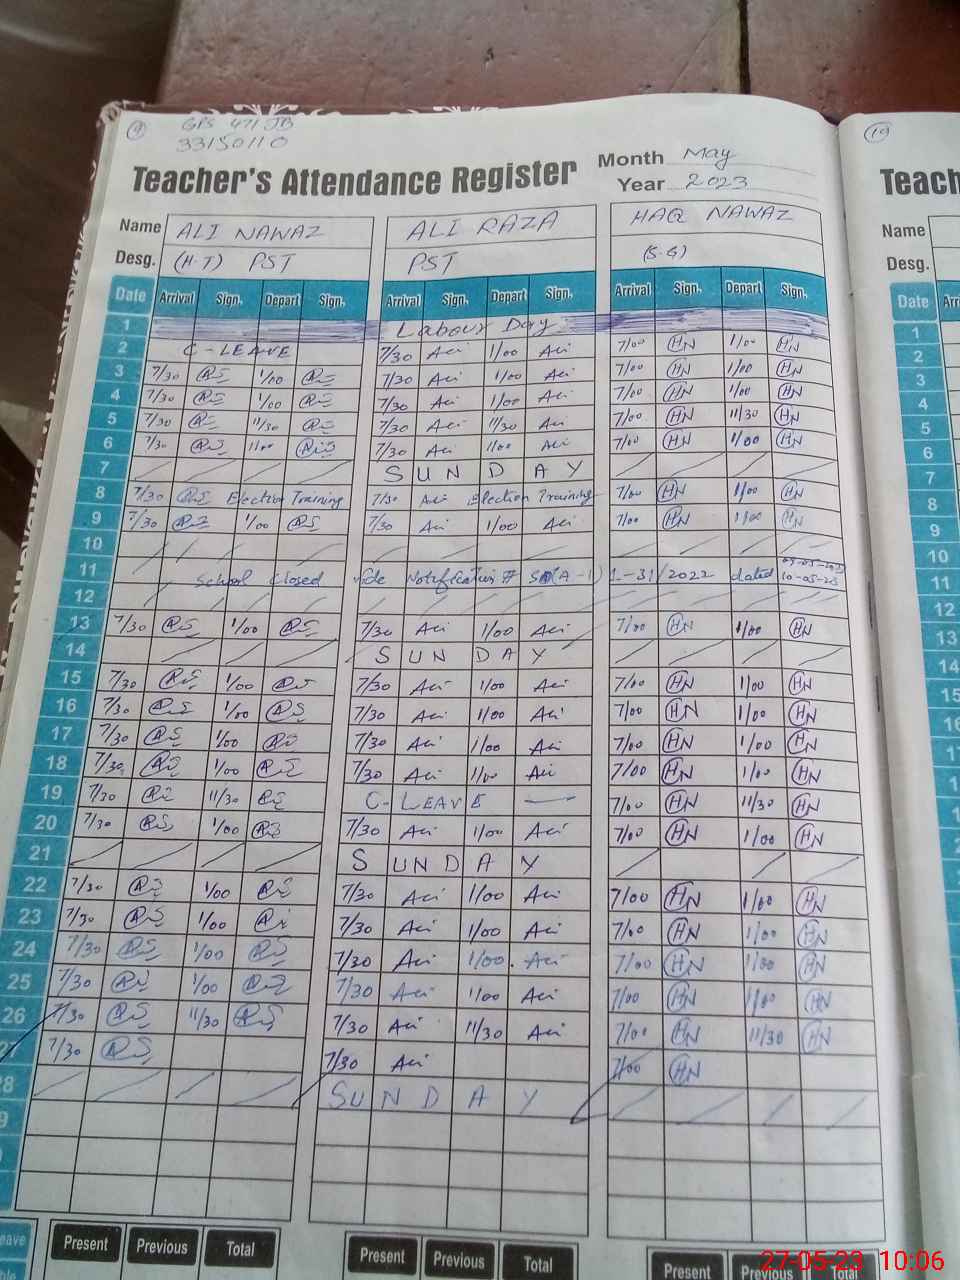 9 GPS 471 JB 19
33150110
Teacher's Attendance Register Month May Teach
Year 2023
Name ALI NAWAZ ALI RAZA HAQ NAWAZ Name
Desg. (H-T) PST PST (S-G) Desg.
Date Arrival Sign. Depart Sign. Arrival Sign. Depart Sign. Arrival Sign. Depart Sign. Date
1 Labour Day 1
2 C-LEAVE 7/30 Ali 1/00 Ali 7/00 HN 1/00 HN 2
3 7/30 1/00 7/30 Ali 1/00 Ali 7/00 HN 1/00 HN 3
4 7/30 1/00 7/30 Ali 1/00 Ali 7/00 HN 1/00 HN 4
5 7/30 11/30 7/30 Ali 11/30 Ali 7/00 HN 11/30 HN 5
6 7/30 1/00 7/30 Ali 1/00 Ali 7/00 HN 1/00 HN 6
7 SUNDAY 7
8 7/30 Election Training 7/30 Ali Election Training 7/00 HN 1/00 HN 8
9 7/30 1/00 7/30 Ali 1/00 Ali 7/00 HN 1/00 HN 9
10 10
11 School Closed vide Notification # SO(A-1) 1-31/2022 dated 10-05-23 11
12 12
13 7/30 1/00 7/30 Ali 1/00 Ali 7/00 HN 1/00 HN 13
14 SUNDAY 14
15 7/30 1/00 7/30 Ali 1/00 Ali 7/00 HN 1/00 HN 15
16 7/30 1/00 7/30 Ali 1/00 Ali 7/00 HN 1/00 HN 16
17 7/30 1/00 7/30 Ali 1/00 Ali 7/00 HN 1/00 HN 17
18 7/30 1/00 7/30 Ali 1/00 Ali 7/00 HN 1/00 HN
19 7/30 11/30 C-LEAVE — 7/00 HN 11/30 HN
20 7/30 1/00 7/30 Ali 1/00 Ali 7/00 HN 1/00 HN
21 SUNDAY
22 7/30 1/00 7/30 Ali 1/00 Ali 7/00 HN 1/00 HN
23 7/30 1/00 7/30 Ali 1/00 Ali 7/00 HN 1/00 HN
24 7/30 1/00 7/30 Ali 1/00 Ali 7/00 HN 1/00 HN
25 7/30 1/00 7/30 Ali 1/00 Ali 7/00 HN 1/00 HN
26 7/30 11/30 7/30 Ali 11/30 Ali 7/00 HN 11/30 HN
27 7/30 7/30 Ali 7/00 HN
28 SUNDAY
Present Previous Total Present Previous Total Present Previous Total
27-05-23 10:06